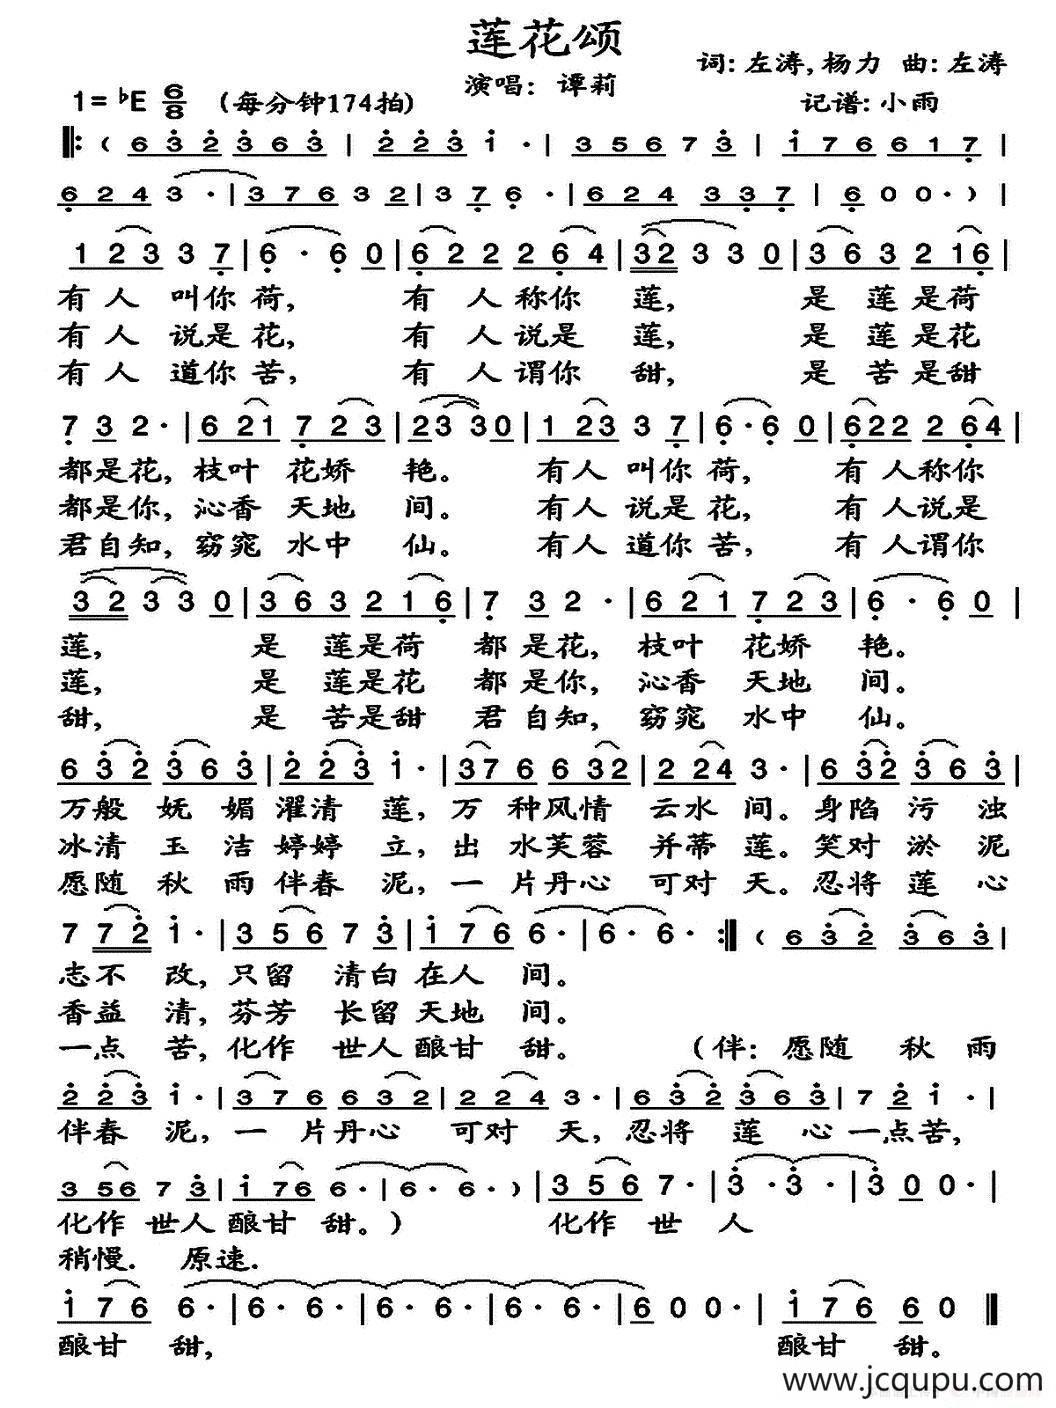 莲花颂
词: 左涛, 杨力 曲: 左涛
演唱: 谭莉
1= ♭E 6/8 (每分钟174拍)
记谱: 小雨
‖: ( 6 3 2 3 6 3 | 2 2 3 1 · | 3 5 6 7 3 | 1 7 6 6 1 7 |
6 2 4 3 · | 3 7 6 3 2 | 3 7 6 · | 6 2 4 3 3 7 | 6 0 0 · ) |
1 2 3 3 7 | 6 · 6 0 | 6 2 2 2 6 4 | 3 2 3 3 0 | 3 6 3 2 1 6 |
有 人 叫你 荷, 有 人 称你 莲, 是 莲 是荷
有 人 说是 花, 有 人 说是 莲, 是 莲 是花
有 人 道你 苦, 有 人 谓你 甜, 是 苦 是甜
7 3 2 · | 6 2 1 7 2 3 | 2 3 3 0 | 1 2 3 3 7 | 6 · 6 0 | 6 2 2 2 6 4 |
都是花, 枝叶 花娇 艳。 有人 叫你 荷, 有 人称你
都是你, 沁香 天地 间。 有人 说是 花, 有 人说是
君自知, 窈窕 水中 仙。 有人 道你 苦, 有 人谓你
3 2 3 3 0 | 3 6 3 2 1 6 | 7 3 2 · | 6 2 1 7 2 3 | 6 · 6 0 |
莲, 是 莲是荷 都 是花, 枝叶 花娇 艳。
莲, 是 莲是花 都 是你, 沁香 天地 间。
甜, 是 苦是甜 君 自知, 窈窕 水中 仙。
6 3 2 3 6 3 | 2 2 3 1 · | 3 7 6 6 3 2 | 2 2 4 3 · | 6 3 2 3 6 3 |
万般 妩 媚濯清 莲, 万 种风情 云水 间。身陷 污 浊
冰清 玉 洁婷婷 立, 出 水芙蓉 并蒂 莲。笑对 淤 泥
愿随 秋 雨伴春 泥, 一 片丹心 可对 天。忍将 莲 心
7 7 2 1 · | 3 5 6 7 3 | 1 7 6 6 · | 6 · 6 · :‖ ( 6 3 2 3 6 3 |
志不 改, 只留 清白 在人 间。
香益 清, 芬芳 长留 天地 间。
一点 苦, 化作 世人 酿甘 甜。 (伴: 愿随 秋 雨
2 2 3 1 · | 3 7 6 6 3 2 | 2 2 4 3 · | 6 3 2 3 6 3 | 7 2 1 · |
伴春 泥, 一 片丹心 可对 天, 忍将 莲 心 一点苦,
3 5 6 7 3 | 1 7 6 6 · | 6 · 6 · ) | 3 5 6 7 · | 3 · 3 · | 3 0 0 · |
化作 世人 酿甘 甜。) 化作 世 人
稍慢. 原速.
1 7 6 6 · | 6 · 6 · | 6 · 6 · | 6 · 6 · | 6 0 0 · | 1 7 6 6 0 ‖
酿甘 甜, 酿甘 甜。
www.jcqupu.com